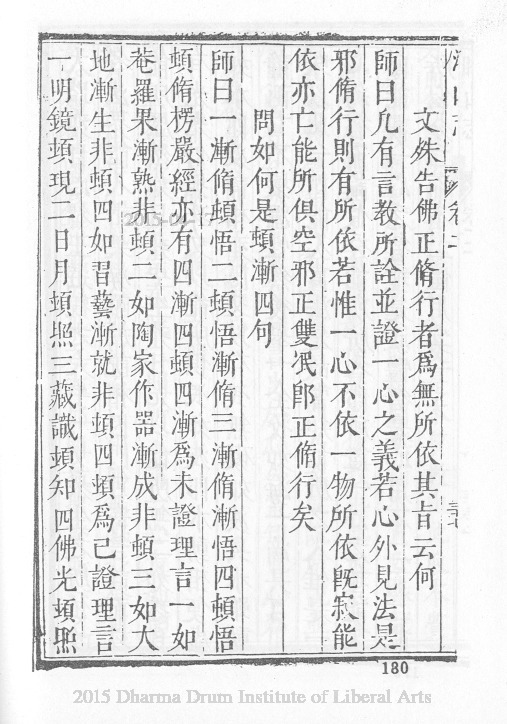 文殊告佛正脩行者爲無所依其旨云何
師曰凢有言教所詮並證一心之義若心外見法是
邪脩行則有所依若惟一心不依一物所依旣寂能
依亦亡能所俱空邪正雙泯卽正脩行矣
問如何是頓漸四句
師曰一漸脩頓悟二頓悟漸脩三漸脩漸悟四頓悟
頓脩楞嚴經亦有四漸四頓四漸爲未證理言一如
菴羅果漸熟非頓二如陶家作器漸成非頓三如大
地漸生非頓四如習藝漸就非頓四頓爲已證理言
一明鏡頓現二日月頓照三藏識頓知四佛光頓照
180
2015 Dharma Drum Institute of Liberal Arts